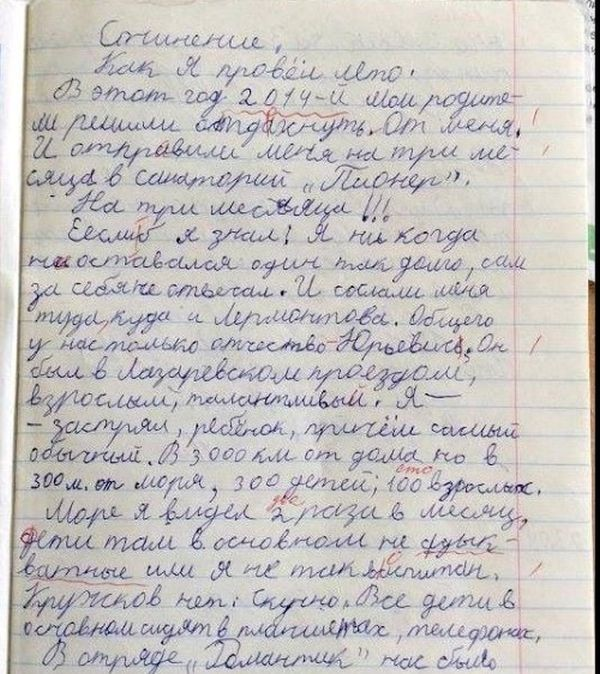 Сочинение.
Как я провёл лето.
В этот год 2014-й мои родите-
ли решили отдахнуть. От меня.
И отправили меня на три ме-
сяца в санаторий „Пионер".
На три месяца!!!
Еесли б я знал! Я ни когда
не оставался один так долго, сам
за себя не отвечал. И сослали меня
туда, куда и Лермонтова. Общего
у нас только отчество - Юрьевич. Он
был в Лазаревском проездом,
взрослый, талантливый. Я —
— застрял, ребёнок, причём самый
обычный. В 3000 км от дома но в
сто
300 м. от моря, 300 детей, 100 взрослых.
две
Море я видел 2 раза в месяц,
дети там в основном не адык-
ватные или я не так воспитан.
Кружков нет. Скучно. Все дети в
основном сидят в планшетах, телефонах.
В отряде „Романтик" нас было